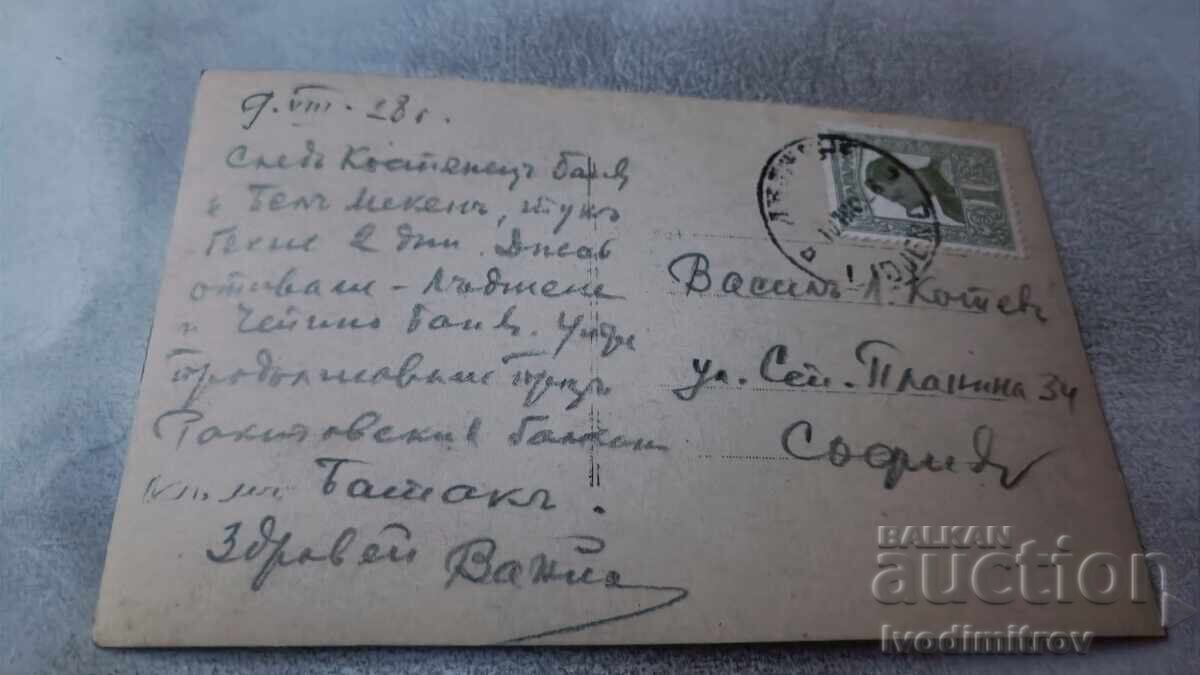 9.VIII.28г.
Следъ Костенецъ баня
и Белъ Мекенъ, тукъ
бехме 2 дни. Днес
отивам - Лъджене
и Чепино баня. Утре
продължаваме през
балкан
към Батакъ.
Здравей
Василъ Л. Котев
ул. Сеп. Планина 34
София
BALKAN
auction
Ivodimitrov